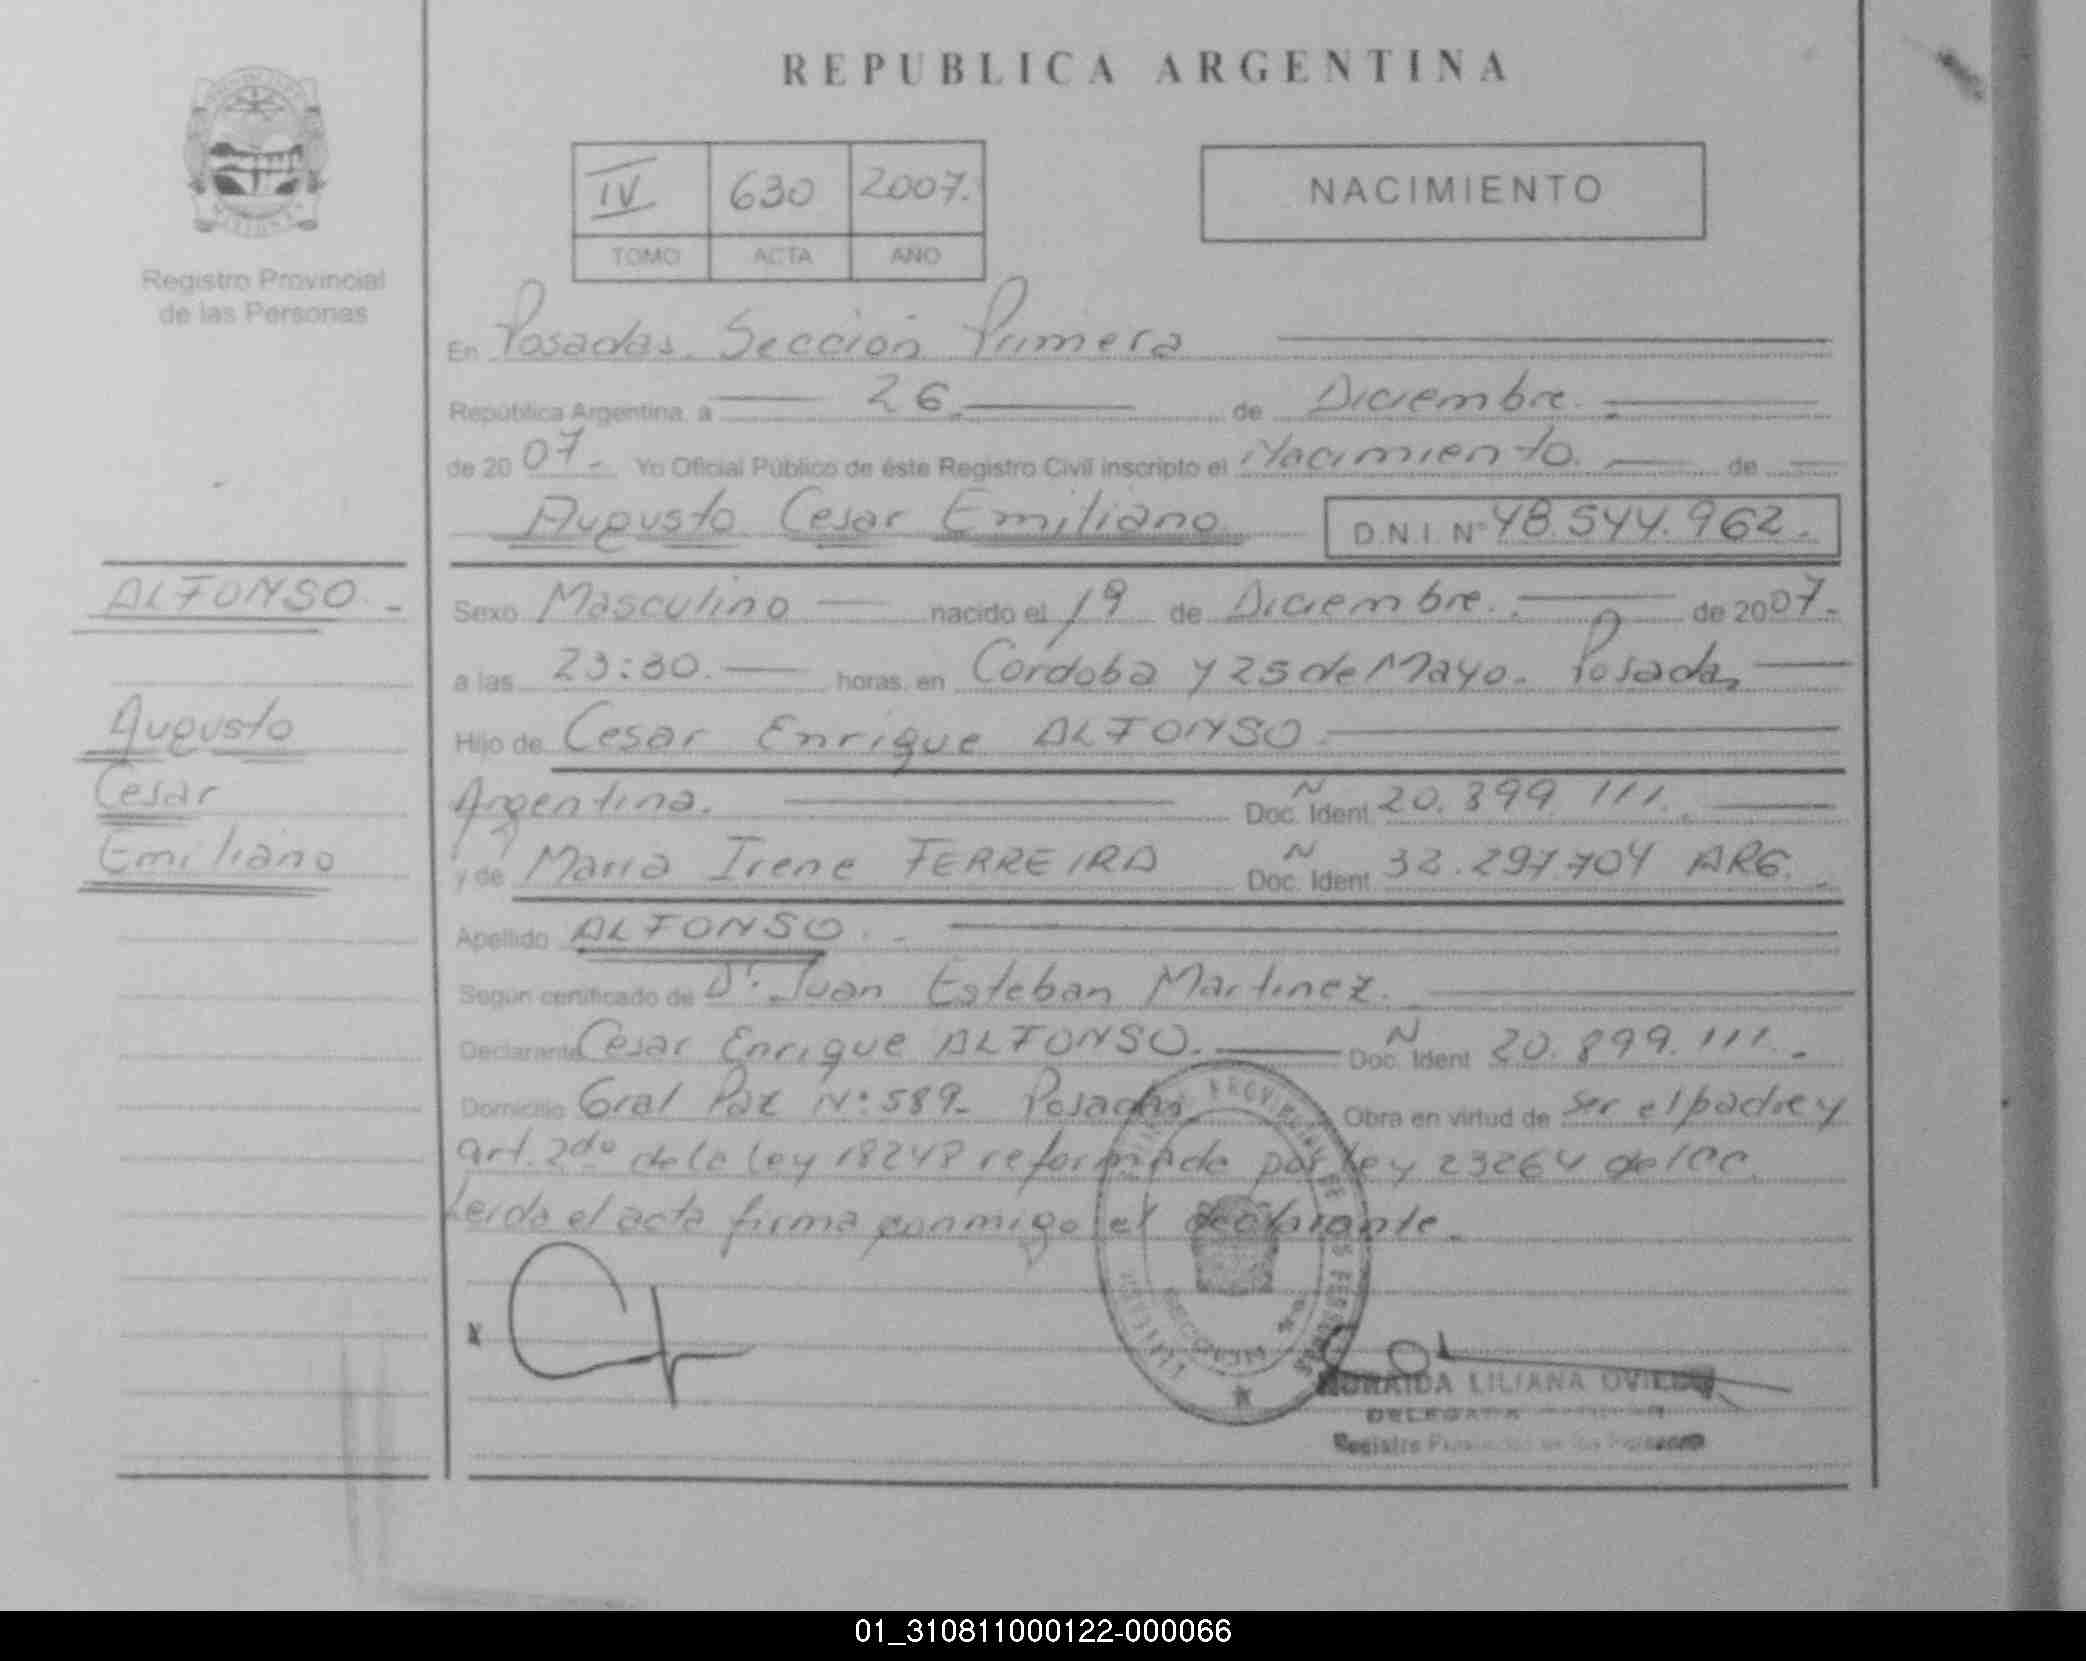 REPUBLICA ARGENTINA
IV 630 2007.
TOMO ACTA AÑO
NACIMIENTO
Registro Provincial
de las Personas
En Posadas. Sección Primera
República Argentina, a 26. de Diciembre.
de 2007. Yo Oficial Público de éste Registro Civil inscripto el Nacimiento. de
Augusto Cesar Emiliano D.N.I. Nº 48.544.962.
ALFONSO.
Augusto
Cesar
Emiliano
Sexo Masculino nacido el 19 de Diciembre. de 2007.
a las 23:30. horas, en Cordoba y 25 de Mayo. Posadas
Hijo de Cesar Enrique ALFONSO.
Argentina. Doc. Ident N 20.899.111.
y de Maria Irene FERREIRA Doc. Ident N 32.297.704 ARG.
Apellido ALFONSO.
Según certificado de Dr. Juan Esteban Martinez.
Declarante Cesar Enrique ALFONSO. Doc. Ident N 20.899.111.
Domicilio Gral Paz Nº 589. Posadas Obra en virtud de ser el padre y
art. 2do de la ley 18248 reformada por ley 23264 del CC.
Leida el acta firma conmigo el declarante.
X
LILIANA
DELEGADA
Registro Provincial de las Personas
01_310811000122-000066